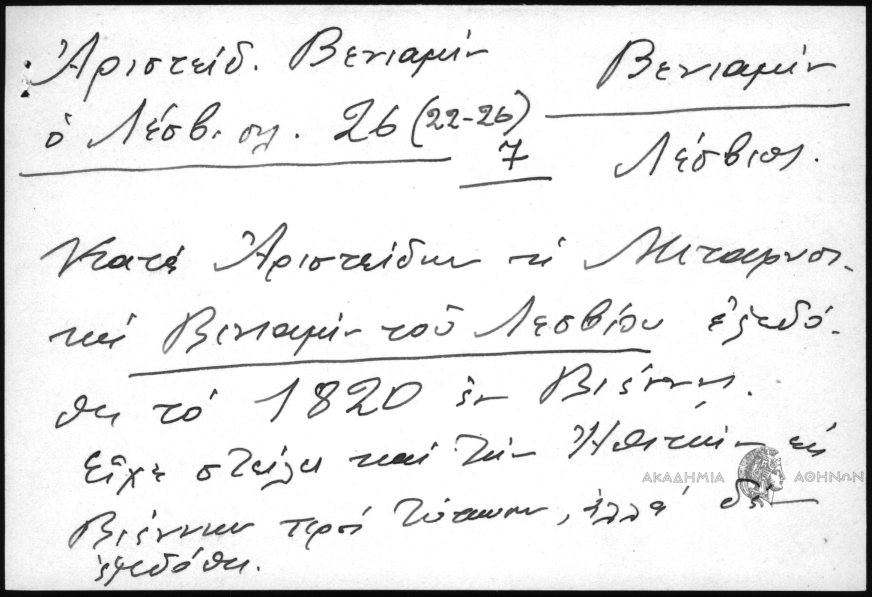 Ἀριστείδ. Βενιαμίν
ὁ Λέσβιος. 26 (22-26)
7
Βενιαμίν
Λέσβιος.
Κατά Ἀριστείδην τά Μεταφυσι-
κά Βενιαμίν τοῦ Λεσβίου ἐξεδό-
θη τό 1820 ἐν Βιέννῃ.
Εἶχε στείλει καί τήν Ἠθικήν εἰς
Βιέννην πρός τύπωσιν, ἀλλά δέν
ἐξεδόθη.
ΑΚΑΔΗΜΙΑ ΑΘΗΝΩΝ